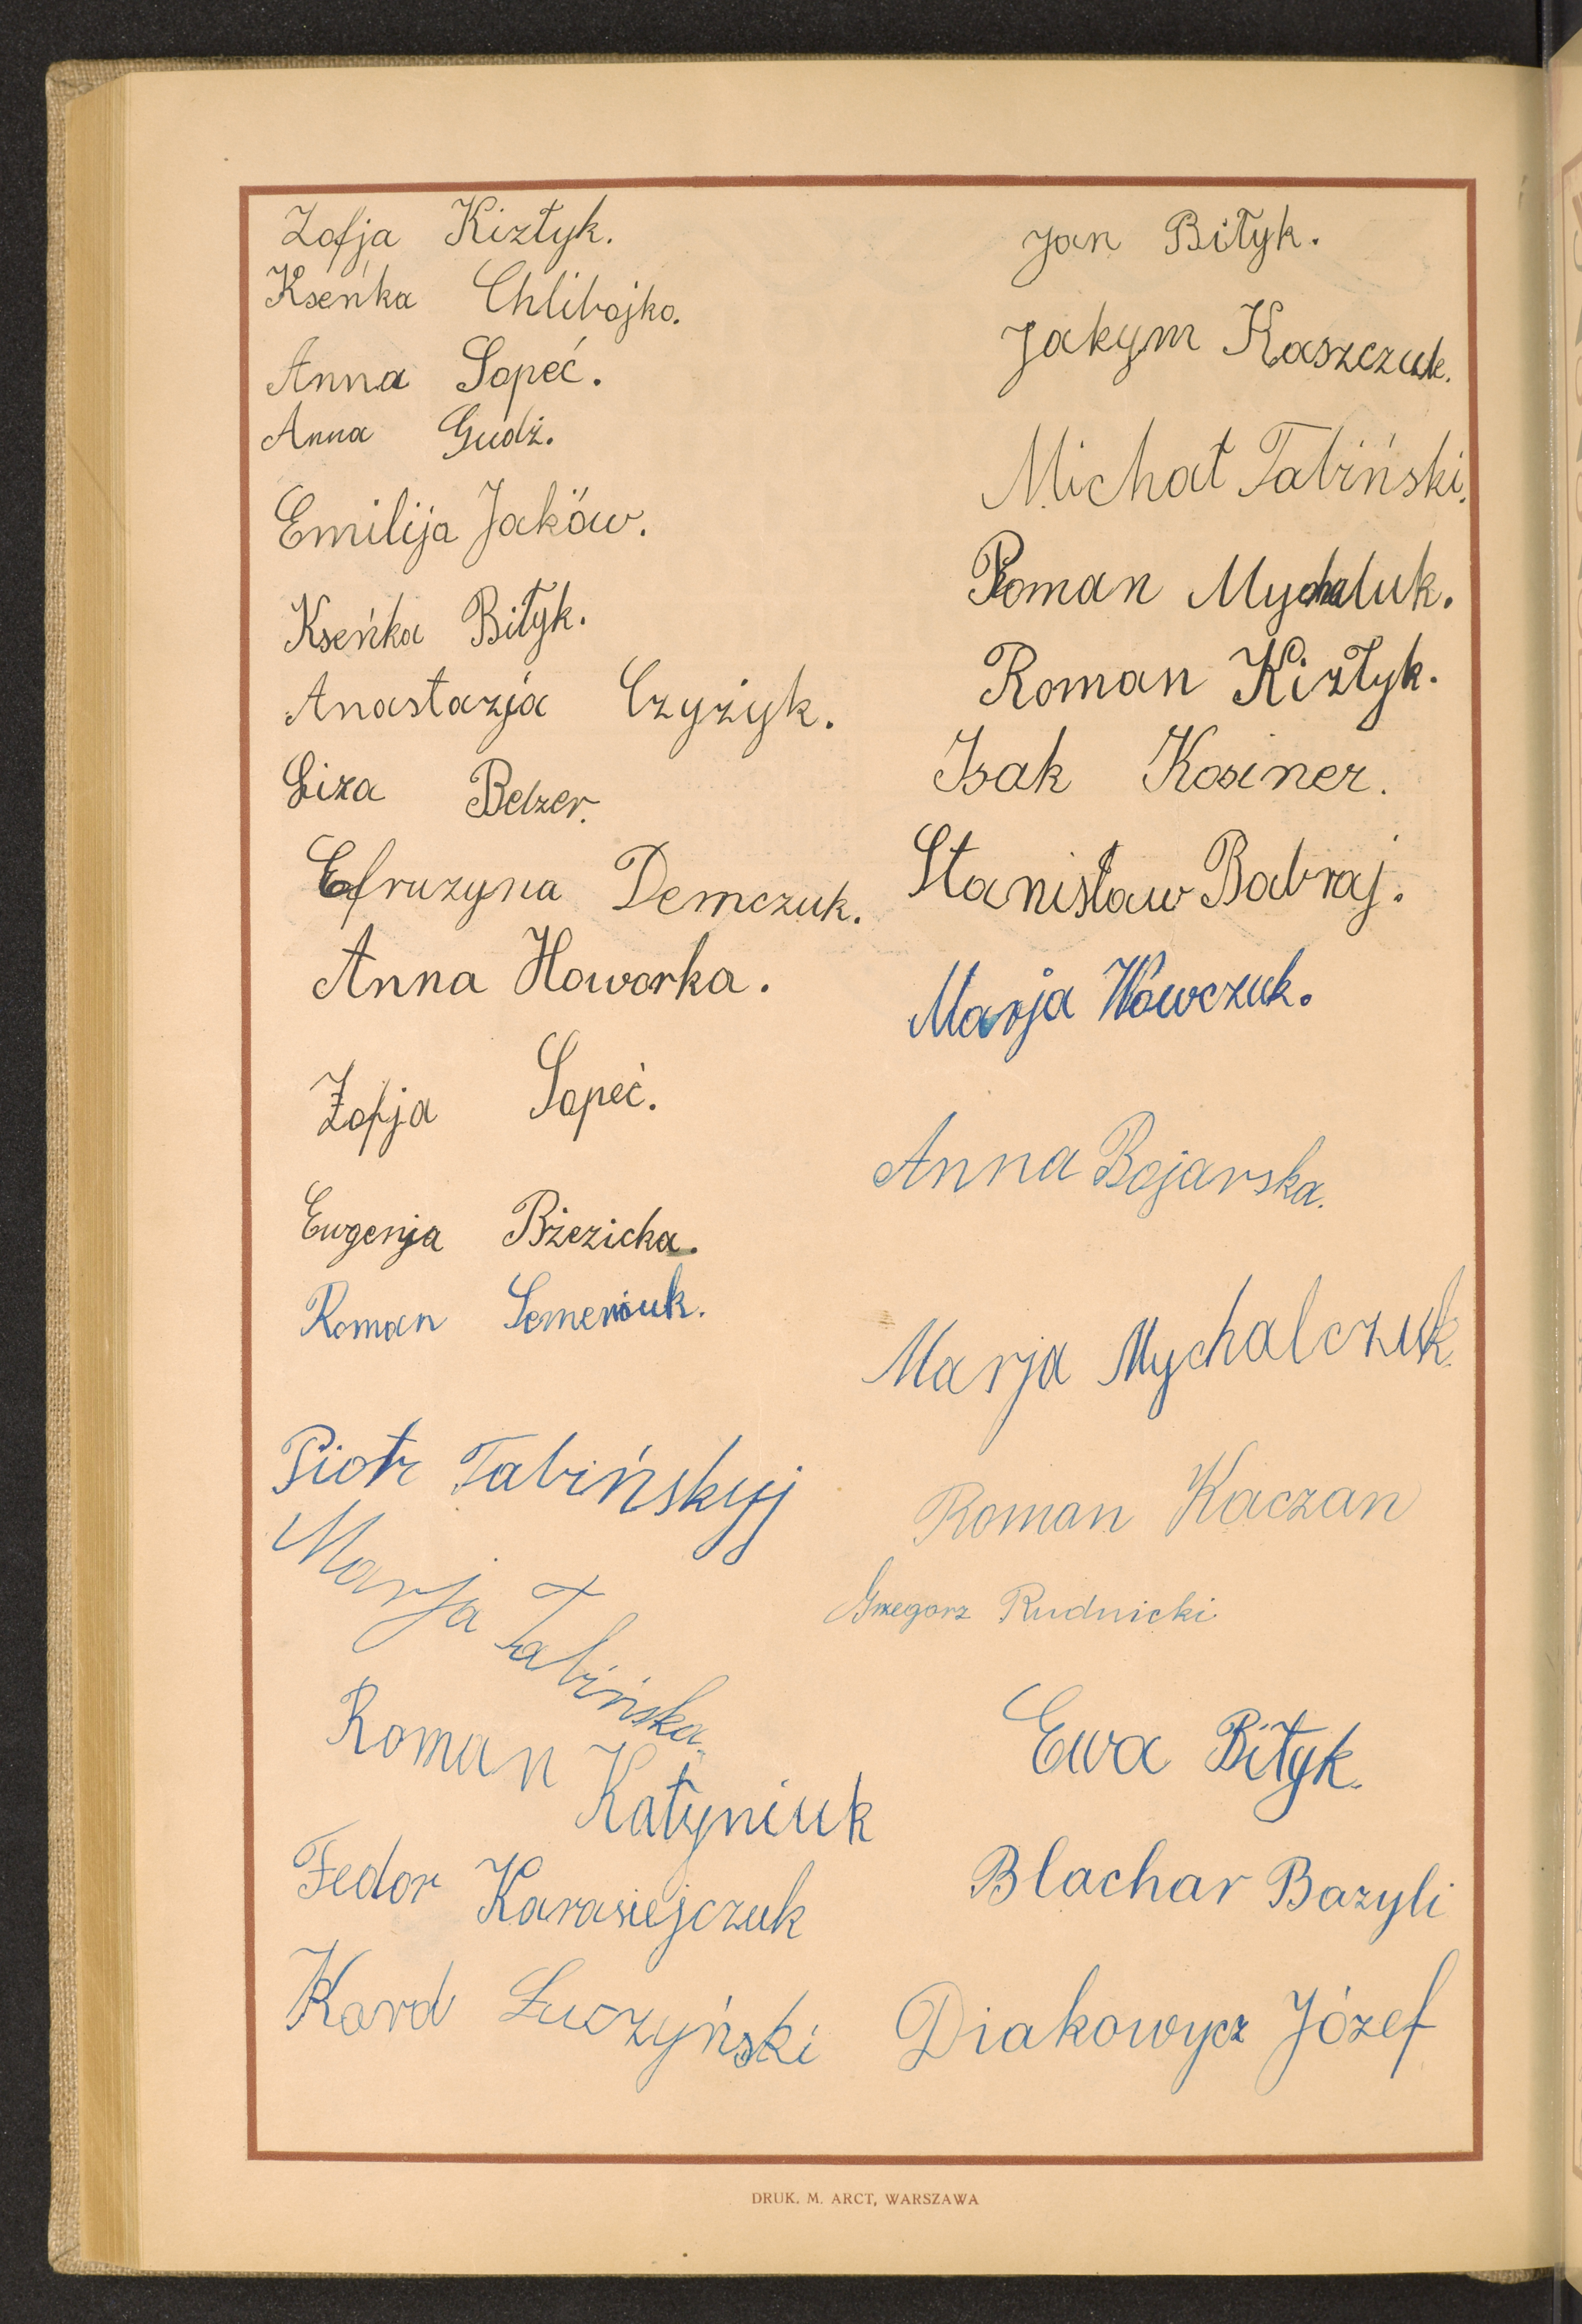 Zofja Kizłyk.
Kseńka Chlibojko.
Anna Sopeć.
Anna Gudź.
Emilija Jaków.
Kseńka Biłyk.
Anastazja Czyżyk.
Liza Belzer.
Efruzyna Demczuk.
Anna Howorka.
Zofja Sopeć.
Eugenja Bżezicka.
Roman Semeniuk.
Piotr Tabińskyj
Marja Tabińska.
Roman Kałyniuk
Fedor Karasiejczuk
Karol Łuczyński
Jan Biłyk.
Jakym Kaszczuk.
Michał Tabiński.
Roman Mychaluk.
Roman Kizłyk.
Isak Kosiner.
Stanisław Babraj.
Marja Wówczuk.
Anna Bojarska.
Marja Mychalczuk.
Roman Kaczan
Grzegorz Rudnicki
Ewa Biłyk.
Blachar Bazyli
Diakowycz Józef
DRUK. M. ARCT, WARSZAWA